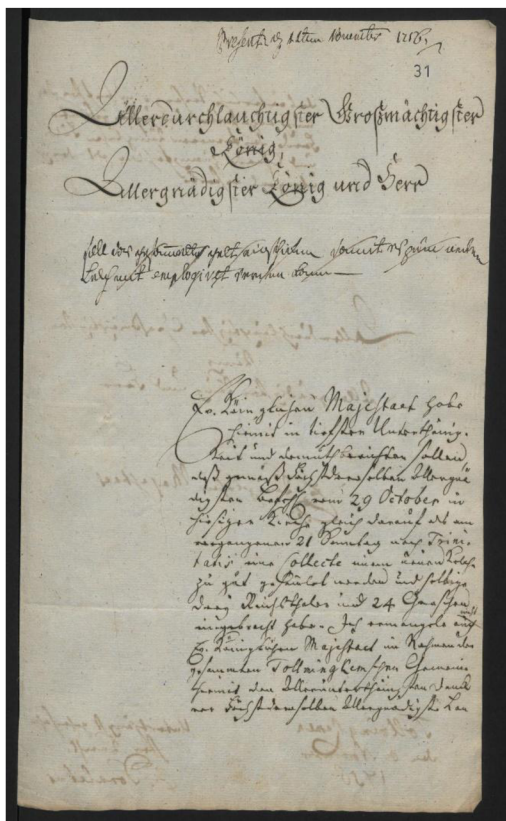 Present. d 11ten November 1756.
31
Allerdurchlauchtigster Großmächtigster
König,
Allergnädigster König und Herr
soll das gesammelte geld einschicken damit es zum neuen
Kelch mit employiret werden kann
Ew. Königlichen Majestaet habe
hiemit in tiefster Unterthänig-
keit und demuth berichten sollen
daß gemäß Höchstderoselben Allergnä-
digsten Befehl vom 29 October in
hiesiger Kirche gleich darauf als am
vergangenen 21 Sonntag nach Trini-
tatis eine Collecte einem neuen Kelche
zu gut gehalten worden und selbige
drey Reichsthaler und 24 Groschen
eingebracht habe. Ich ermangele auch nicht
E. Königlichen Majestaet im Nahmen der
gesammten Tollmingkemschen Gemeine
hiemit den Allerunterthänigsten Dank
vor Höchstderoselben Allergnädigste